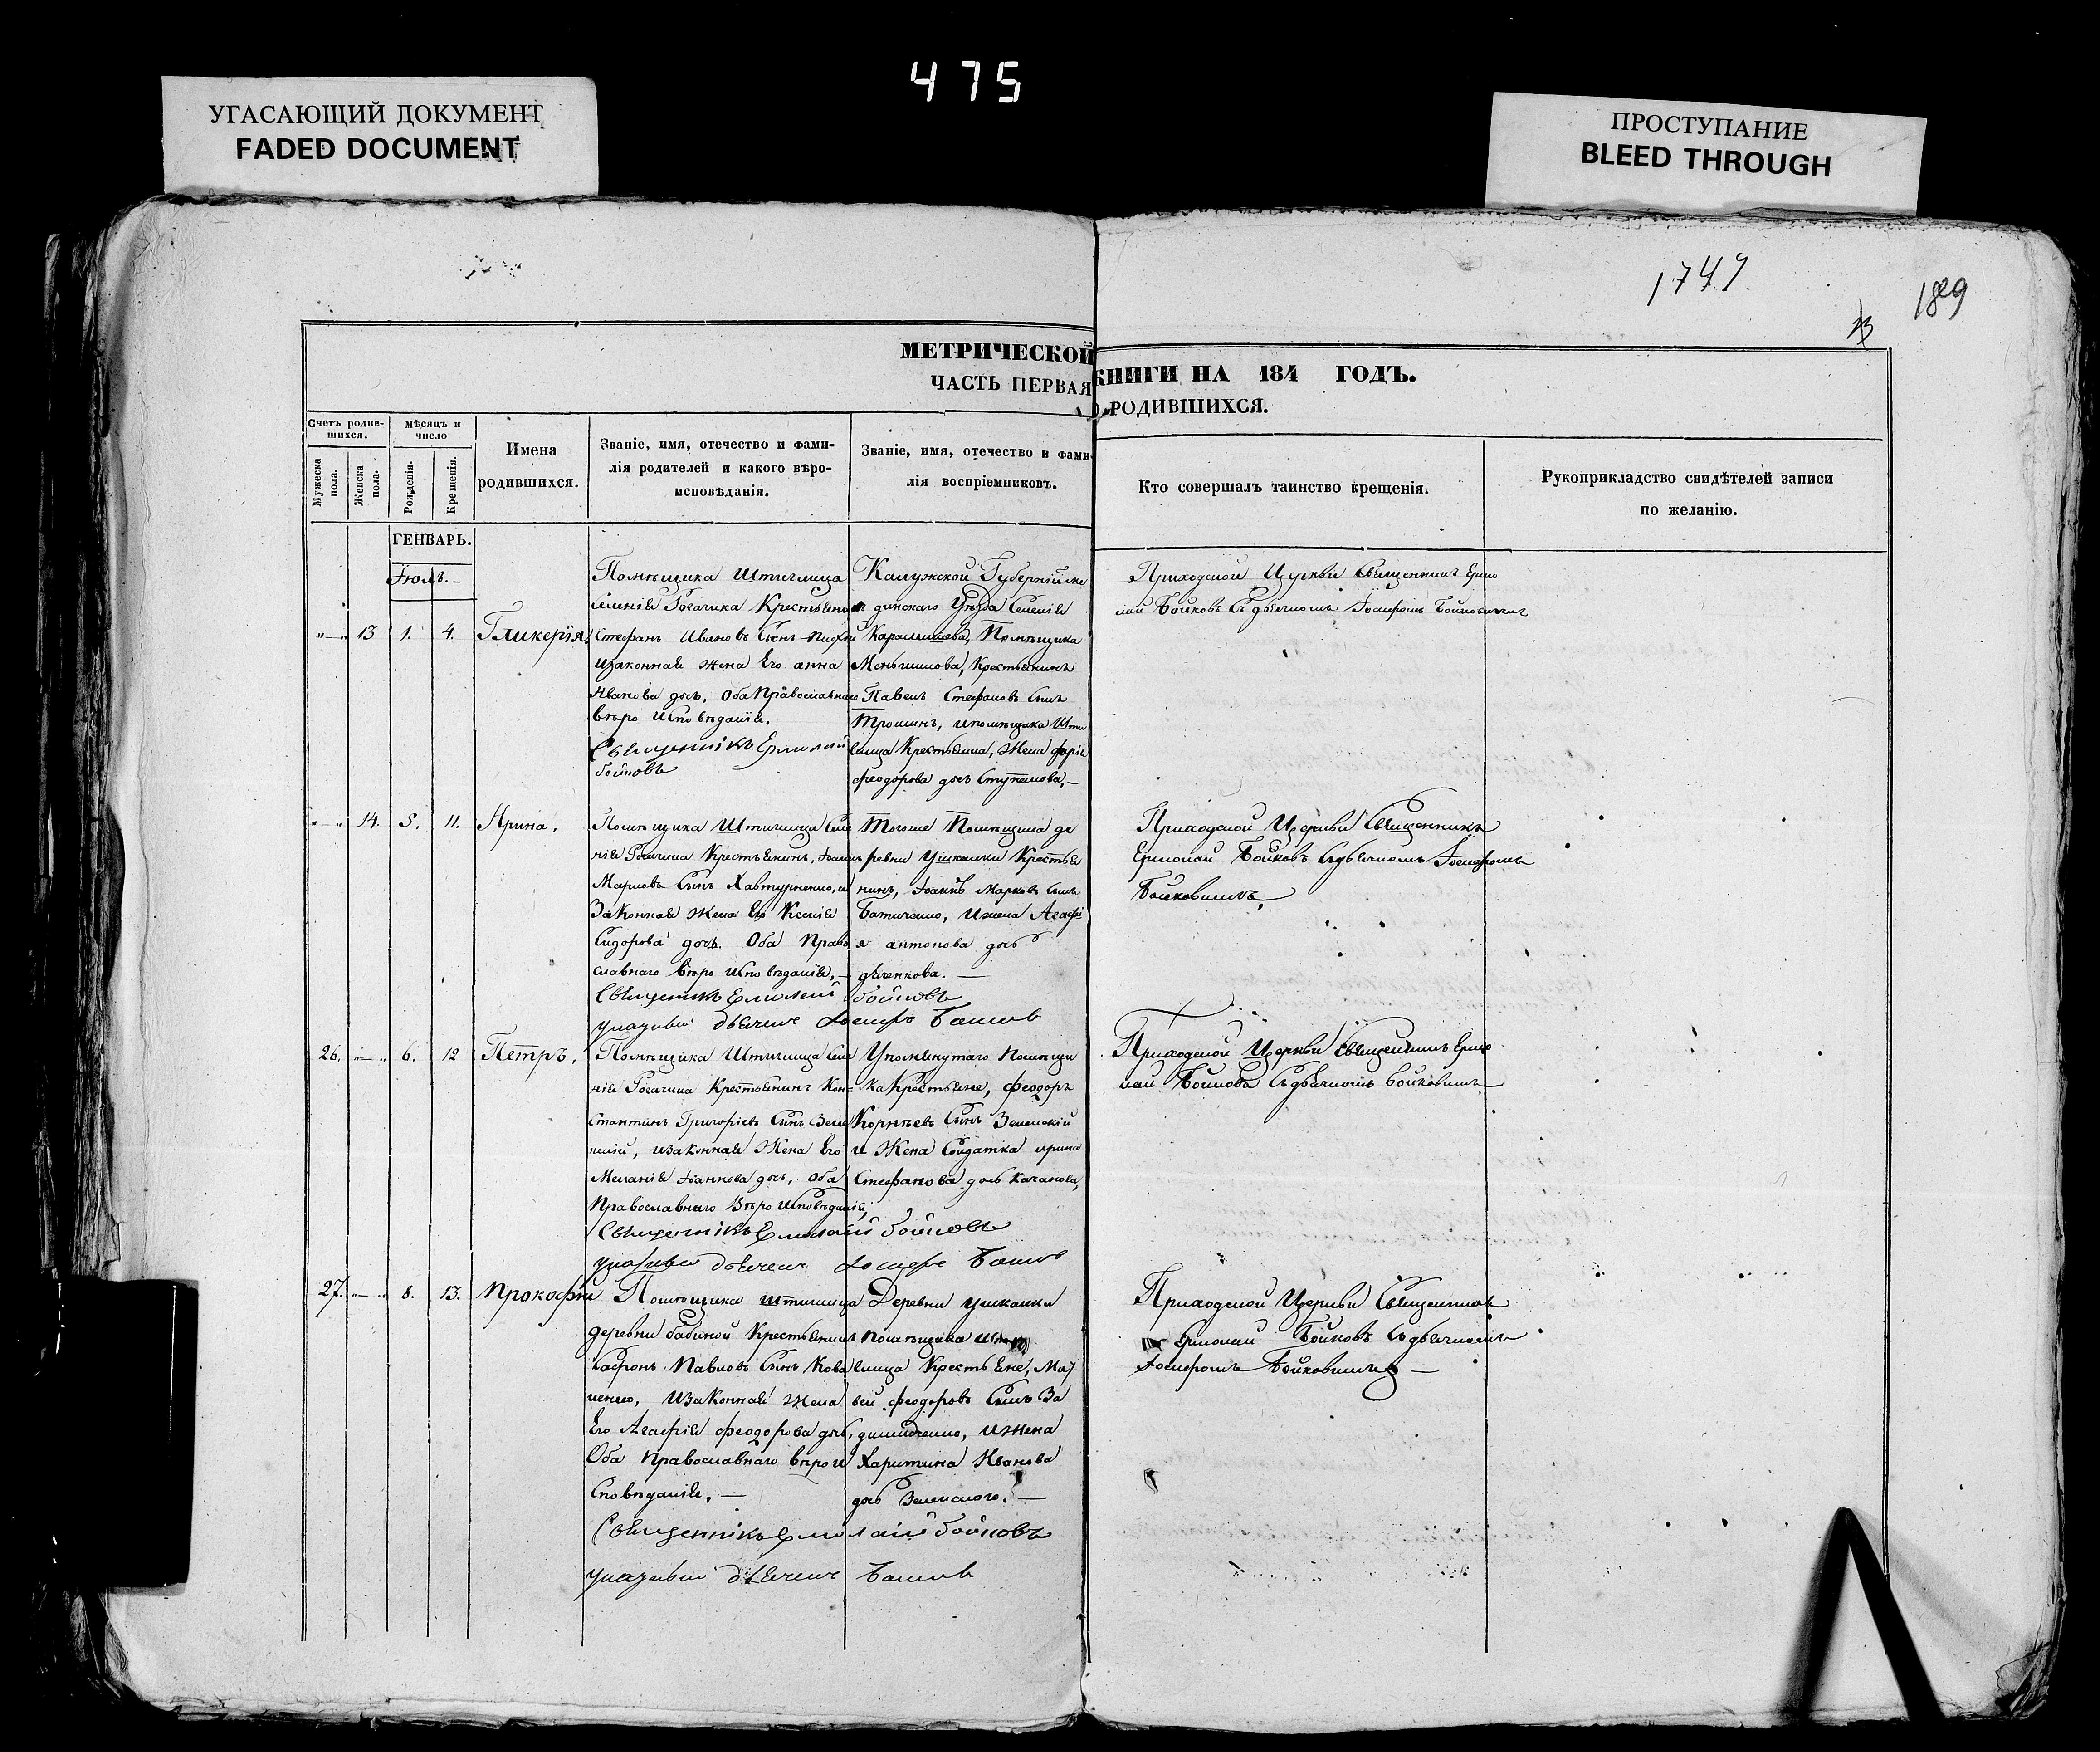 475
УГАСАЮЩИЙ ДОКУМЕНТ
FADED DOCUMENT
ПРОСТУПАНИЕ
BLEED THROUGH
1747
189
МЕТРИЧЕСКОЙ КНИГИ НА 184 ГОДЪ.
ЧАСТЬ ПЕРВАЯ О РОДИВШИХСЯ.
Счетъ родив-
шихся.
Мужеска
пола.
Женска
пола.
Мѣсяцъ и
число
Рожденія.
Крещенія.
Имена
родившихся.
Званіе, имя, отечество и фами-
лія родителей и какого вѣро-
исповѣданія.
Званіе, имя, отечество и фами-
лія воспріемниковъ.
Кто совершалъ таинство крещенія.
Рукоприкладство свидѣтелей записи
по желанію.
ГЕНВАРЬ.
Іюль.
13 1. 4. Гликерія
Помѣщика Штиглица
селенія Рогачика Крестьянин
Стефанъ Ивановъ Сынъ
изаконная жена Его анна
Иванова дочь, оба Православнаго
вѣро Исповѣданія.
Священникъ Ермолай
Бойковъ
Калужской Губерніи
динскаго Уѣзда Селенія
Помѣщика
Меньшикова, Крестьянинъ
Павелъ Стефановъ Сынъ
Трошинъ, ипомѣщика Шти
глица Крестьянина, Жена
феодорова дочь
Приходской Церкви Священникъ Ермо
лай Бойковъ Съдьячкомъ Іосифомъ
14. 5. 11. Ирина.
Помѣщика Штиглица Селе
нія Рогачика Крестьянинъ, Іоаннъ
Марковъ Сынъ Хавтурненко, и
Законная Жена Его Ксенія
Сидорова дочь. Оба Право
славнаго вѣро исповѣданія,
Священникъ Ермолай Бойковъ
Тогоже Помѣщика де
ревни Ушкалки Крестья
нинъ, Іоаннъ Марковъ Сынъ
Батиченко, Ижена Агафі
я антонова дочь
дяченкова.
Приходской Церкви Священникъ
Ермолай Бойковъ Съдьячкомъ Іосифомъ
Бойковимъ,
26. 6. 12 Петръ.
Помѣщика Штиглица Селе
нія Рогачика Крестьянинъ Кон=
стантинъ Григорьевъ Сынъ Зеле
нскій, изаконная Жена Его
Меланія Іоаннова дочь, Оба
Православнаго Вѣро Исповѣданія,
Священникъ Ермолай Бойковъ
Упомянутаго Помѣщи
ка Крестьяне, феодоръ
Корнѣевъ Сынъ Зеленскій
и Жена Солдатка ирина
Стефанова дочь Качанова,
Приходской Церкви Священникъ Ермо
лай Бойковъ Съдьячкомъ Бойковимъ
27. 8. 13. Прокофій
Помѣщика Штиглица
деревни бабиной Крестьянинъ
Сафронъ Павловъ Сынъ Кова
ленко, Изаконная Жена
Его Агафія феодорова дочь,
Оба Православнаго вѣро и
Сповѣданія.
Священникъ Ермолай Бойковъ
Деревни Ушкалки
помѣщика
глица Крестьяне, Мат
вей феодоровъ Сынъ За
Ижена
Харитина Иванова
дочь Зеленского.
Приходской Церкви Священникъ
Ермолай Бойковъ Съдьячкомъ
Іосифомъ Бойковимъ